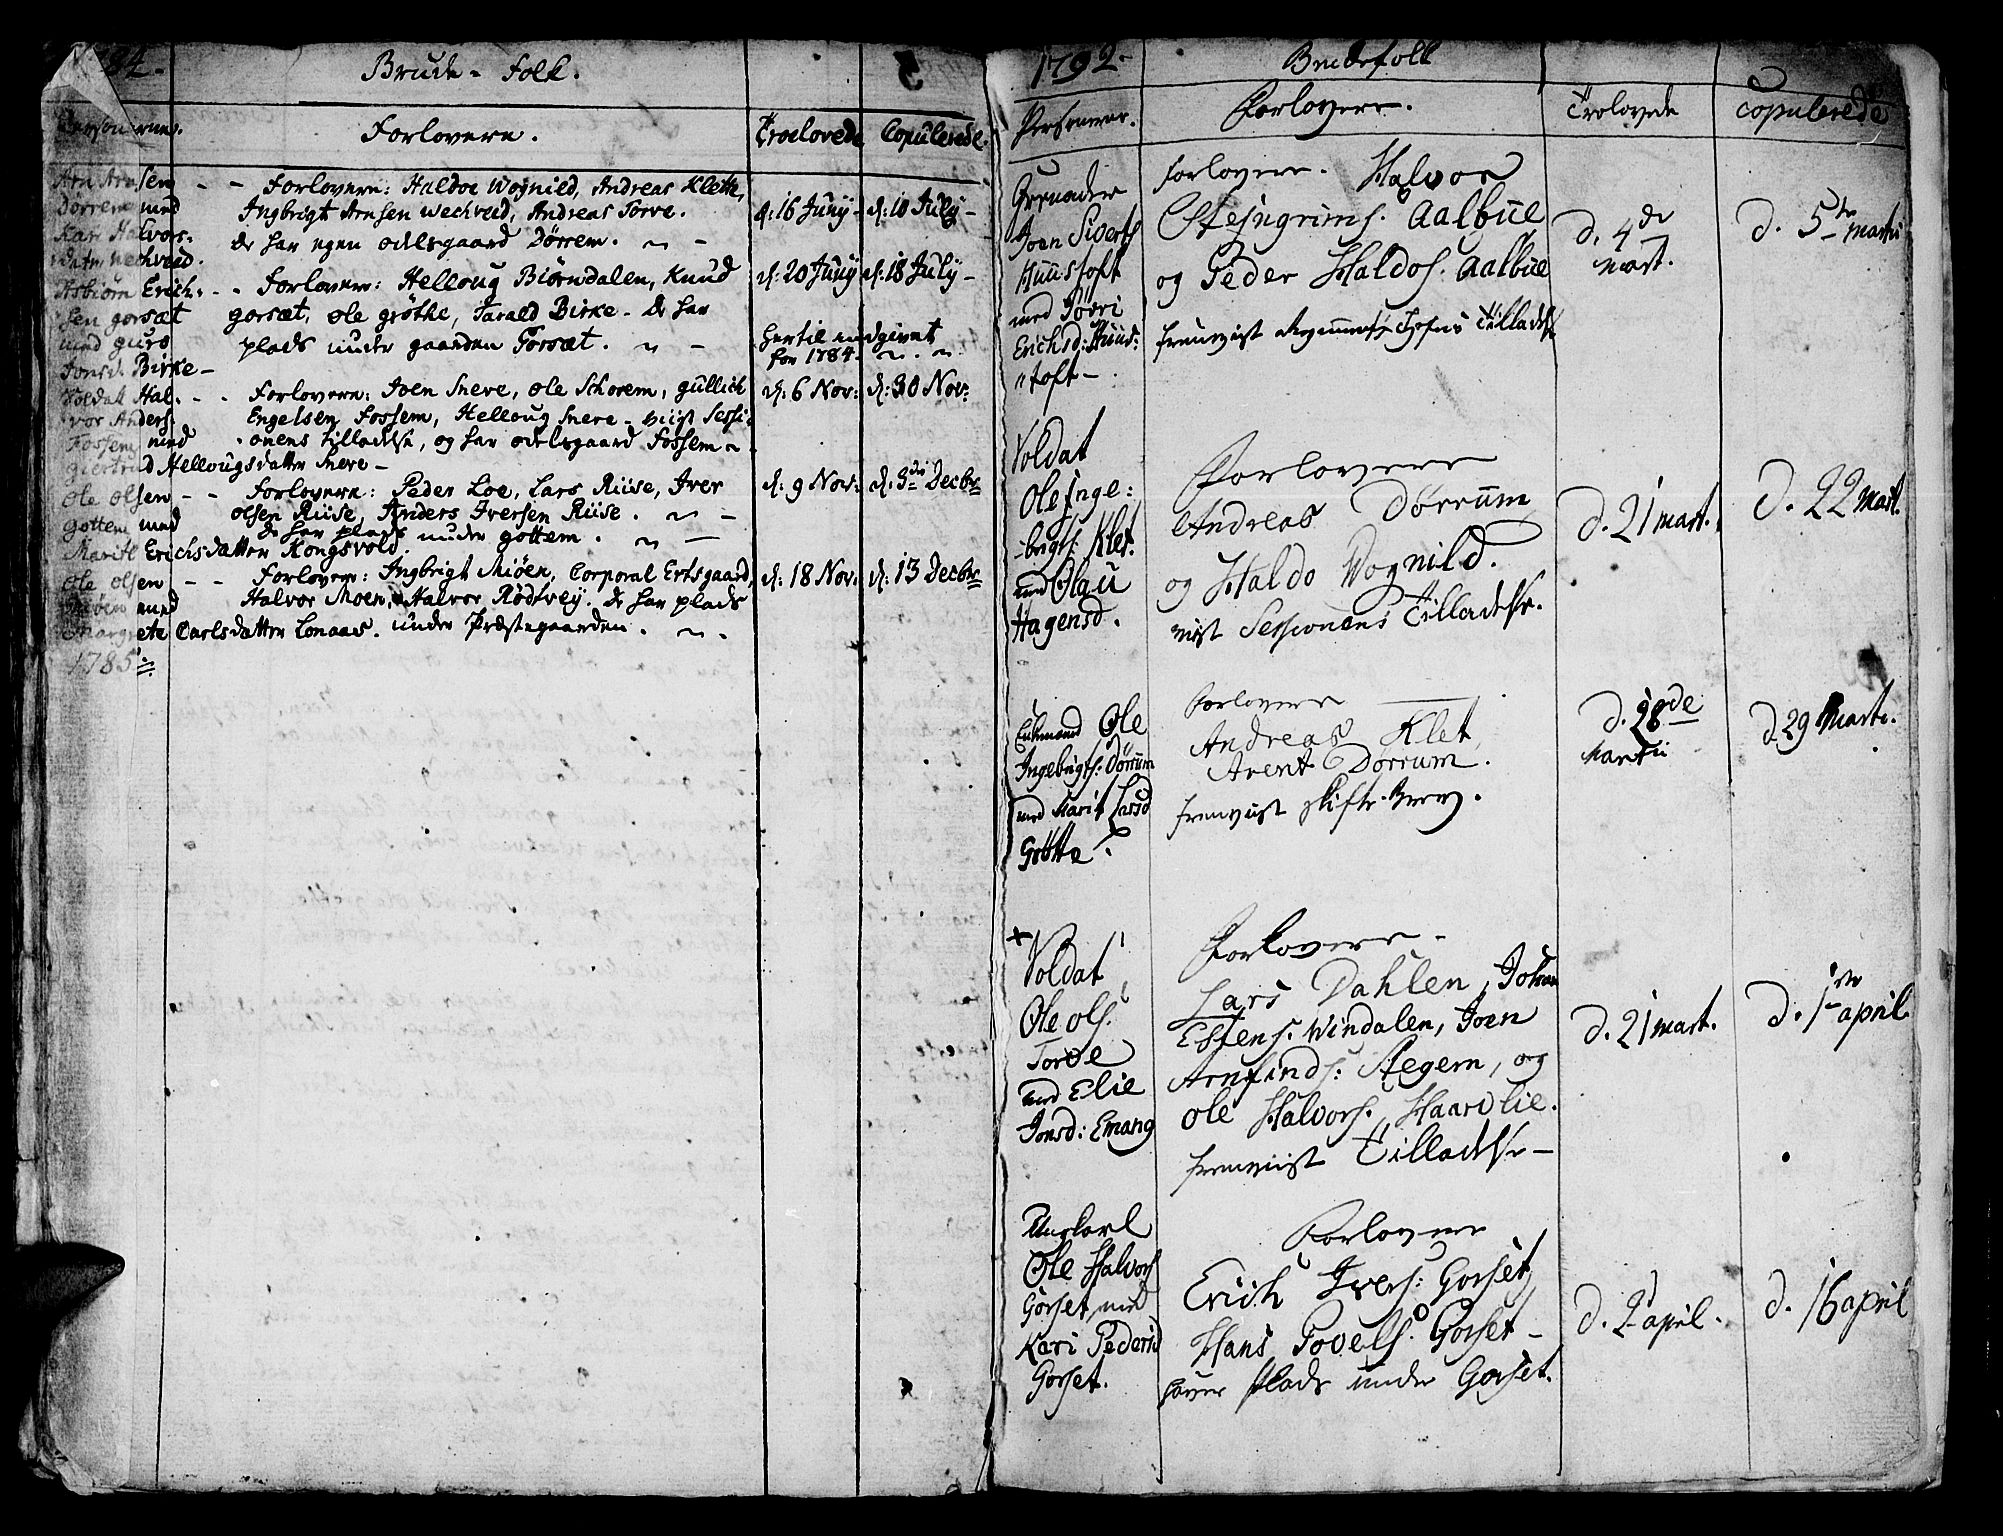 1784.
Brude-Folk.
Personerne.
Forlovere.
Troelovede
Copulerede.
Arn Arnsen
Dørrem med
Kari Halvors-
datter Wechveid.
- - Forlovere: Haldoe Wognild, Andreas Klette,
Ingbrigt Arnsen Wechveid, Andreas Torve.
De har egen odelsgaard Dørrem.
d: 16 Juny -
d: 10 July -
Asbiørn Erich-
sen gorsæt
med guro
Jonsd. Birke -
- - Forlovere: Helloug Biørndalen, Knud
gorsæt, ole grøthe, Tarald Birke - De har
plads under gaarden Gorsæt.
d: 20 Juny
d: 18 July -
hertil indgivet
for 1784.
Soldat Hal-
vor Anders:
Fossem med
giertrud Hellougsdatter Snere -
- - Forlovere: Joen Snere, ole Schorem, gullich
Engelsen Fossem, Helloug Snere - viist Sessi-
onens tilladelse, og har odelsgaard Fossem
d: 6 Nov:
d: 30 Nov:
Ole Olsen
Gottem med
Marit Erichsdatter Kongsvold.
- - Forlovere: Peder Loe, Lars Riise, Iver
olsen Riise, Anders Iversen Riise.
De har plads under gottem.
d: 9 Nov:
d: 3de Decbr
Ole olsen
Miøen med
Margrete Carlsdatter Lonaas.
- - Forlovere: Ingbrigt Miøen, Corporal Ertsgaard,
Halvor Moen, Halvor Rødtvey. De har plads
under Præstegaarden.
d: 18 Nov:
d: 13 Decbr
1785:
1792.
Brudefolk
Personer.
Forlovere.
Trolovede
Copulerede
Grenader
Joen Siverts
Huustoft
med
Erichsd: Huus-
toft -
Forlovere. Halvor
Stejngrims. Aalbue
og Peder Haldos. Aalbue
fremvist Tilladelse
d. 4de
Mart.
d. 5te Marti
Soldat
Ole Inge-
brigts: Klet.
med Olau
Hagensd.
Forlovere
Andreas Dørrum
og Haldo Wognild.
vist Sessionens Tilladelse.
d. 21 Mart.
d. 22 Mart.
Enkemand Ole
Ingebrigts: Dørrum
med Marit Larsd
Grøtte.
Forlovere
Andreas Klet,
Arent Dørrum.
fremvist Skifte-Brev.
d. 28de
Martii
d. 29 Marti.
+ Soldat
Ole Ols.
Torve
med Elie
Jonsd: Emang
Forlovere -
Lars Dahlen, Johan
Estens. Windalen, Joen
Arnfinds: Stegern, og
Ole Halvors. Haardlie.
fremviist Tilladelse -
d. 21 Mart.
d. 1ste april
Ungkarl
Ole Halvors
Gorset, med
Kari Pedersd
Gorset.
Forlovere
Erich Ivers: Gorset,
Hans Povels. Gorset -
haver Plads under Gorset.
d. 2 april.
d. 16 april